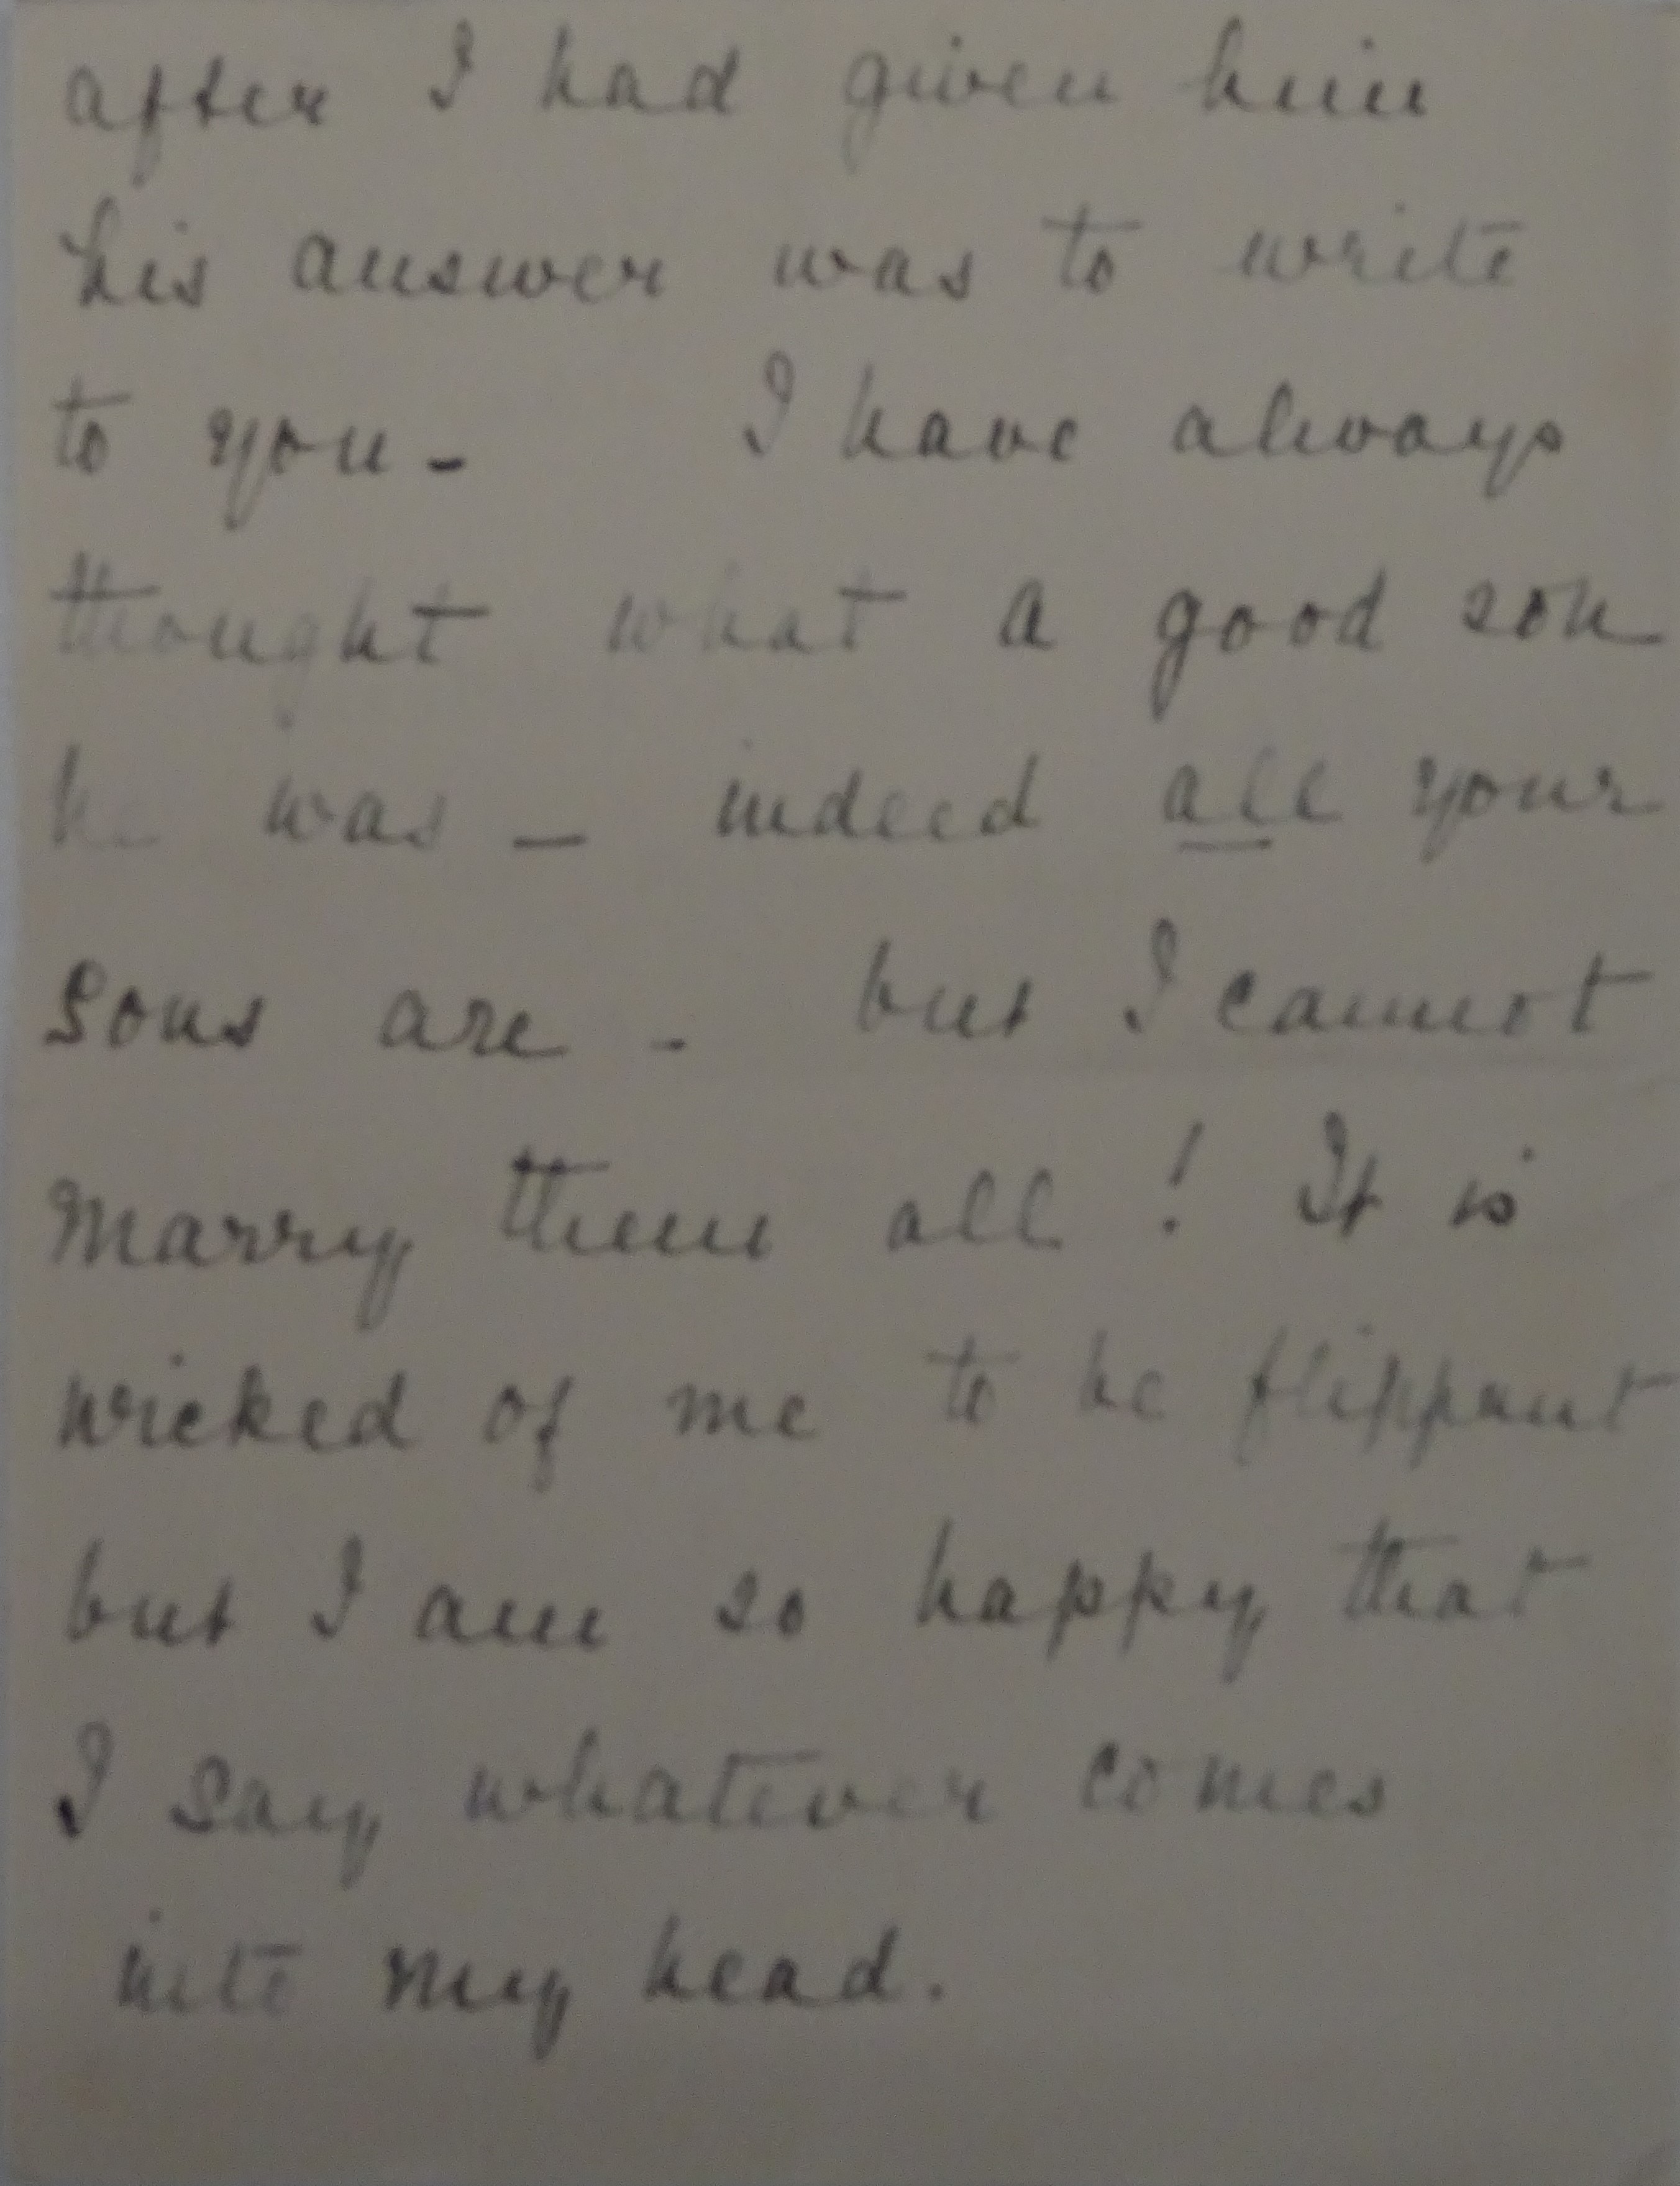 after I had given him
his answer was to write
to you - I have always
thought what a good son
he was - indeed all your
sons are - but I cannot
marry them all ! It is
wicked of me to be flippant
but I am so happy that
I say whatever comes
into my head.